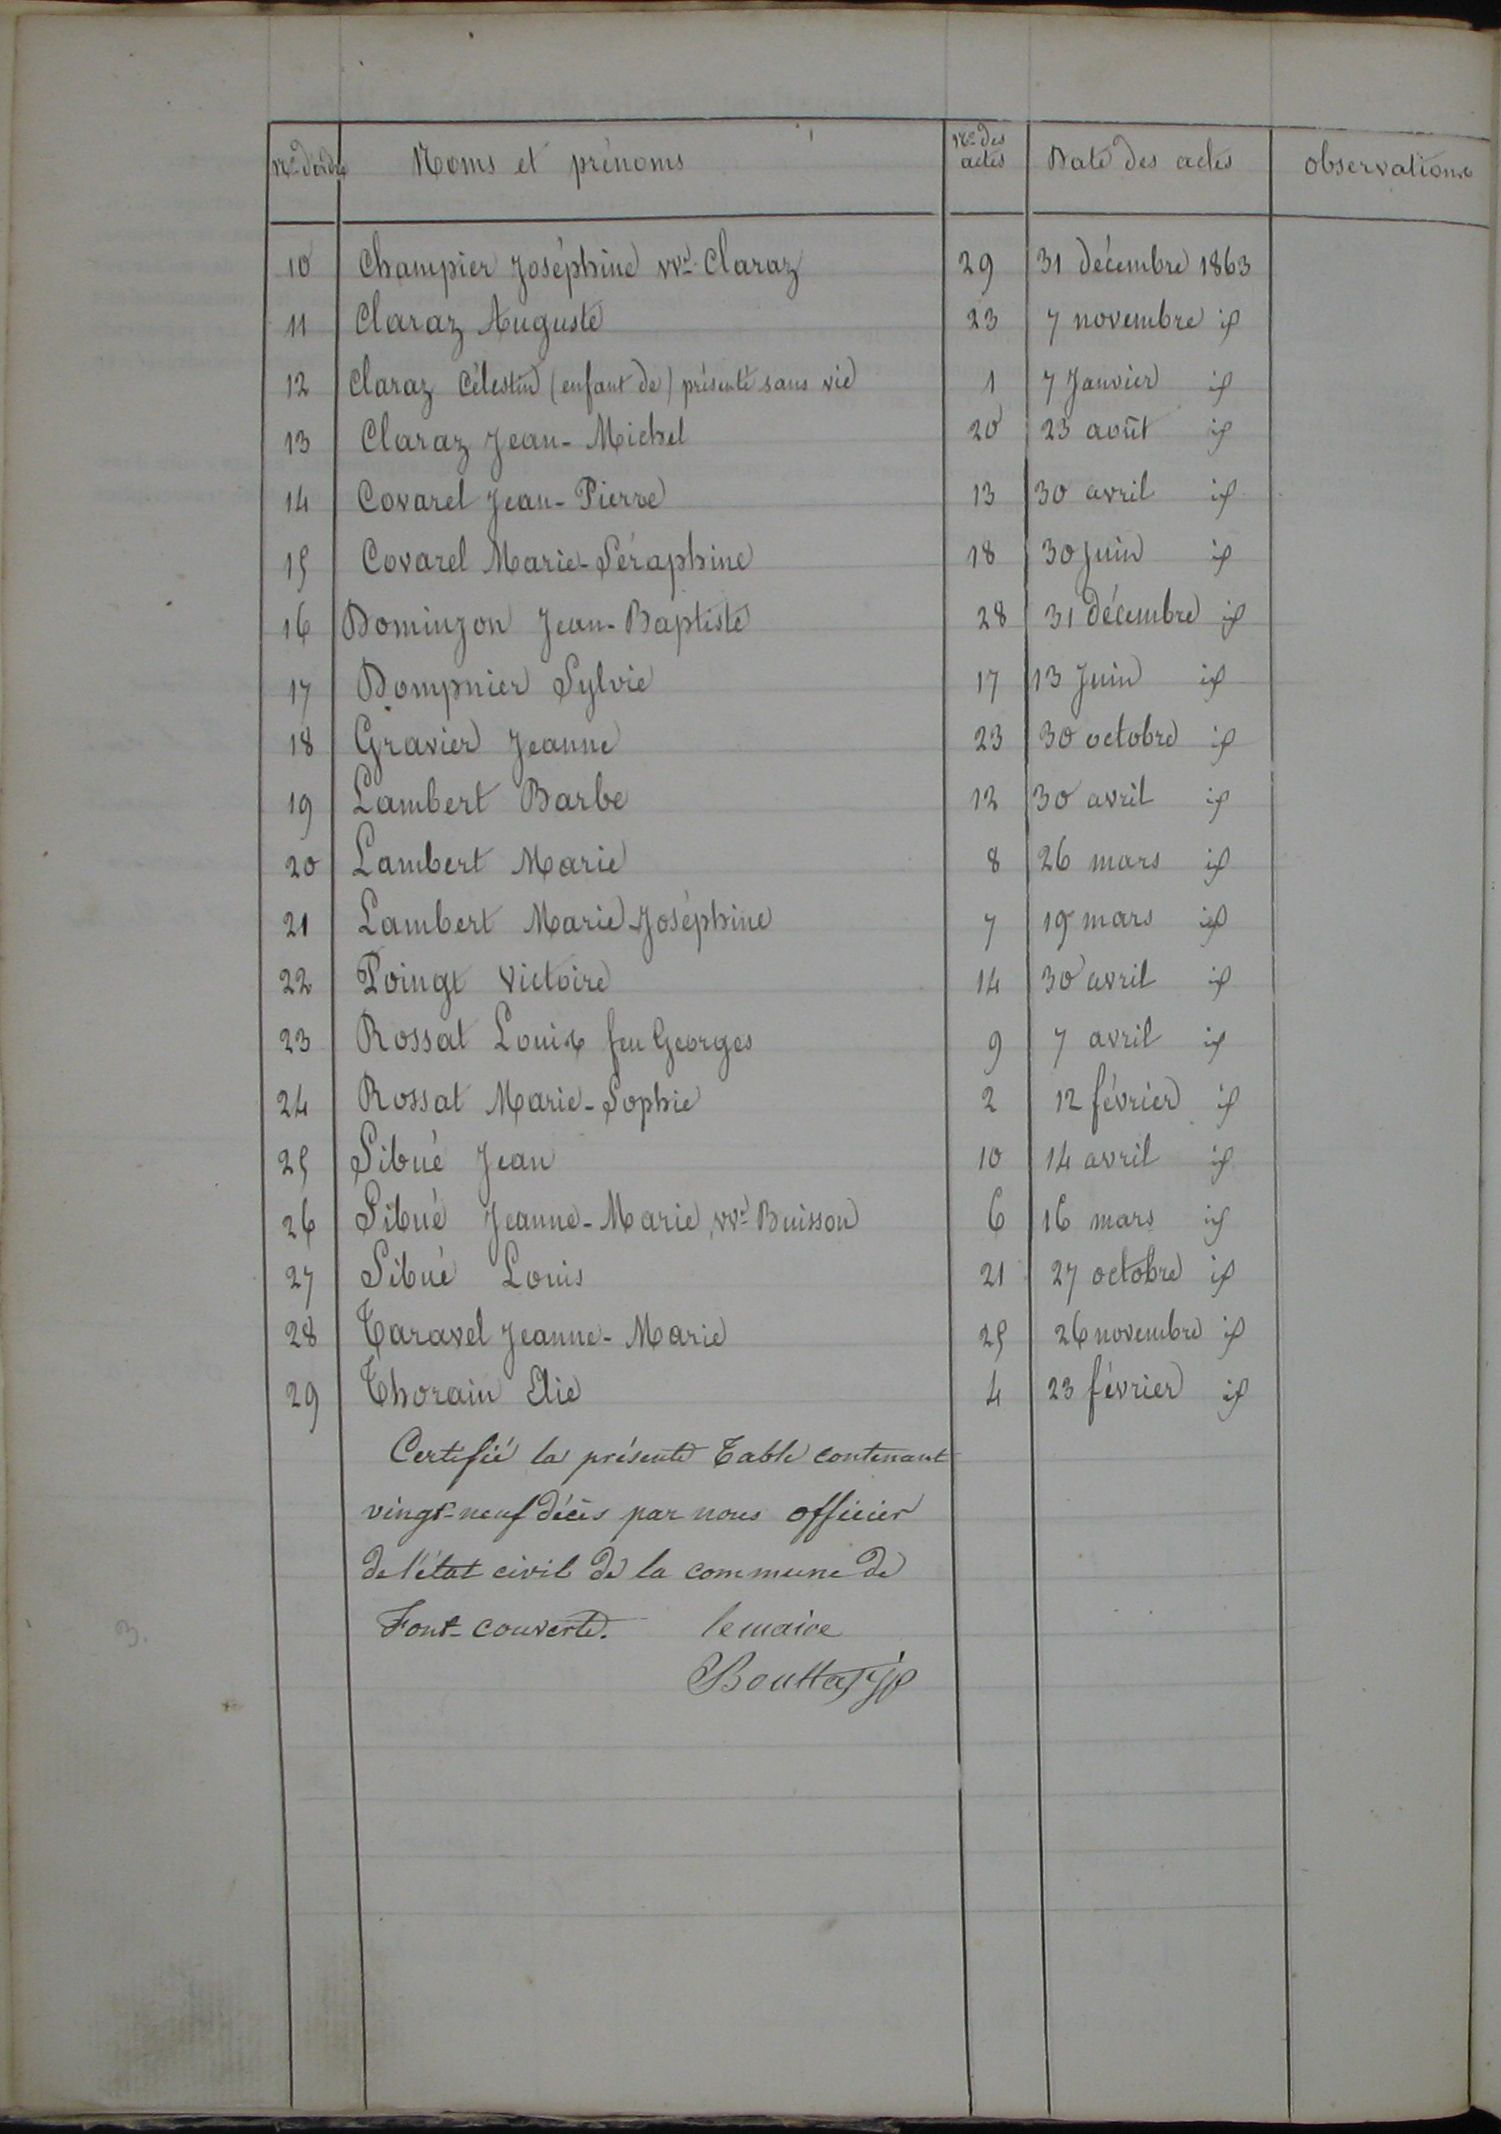 N° d'ordre Noms et prénoms N° des actes Date des actes observations
10 Champier Joséphine vve Claraz 29 31 décembre 1863
11 Claraz Auguste 23 7 novembre id
12 Claraz Célestin (enfant de) présenté sans vie 1 7 Janvier id
13 Claraz Jean-Michel 20 23 août id
14 Covarel Jean-Pierre 13 30 avril id
15 Covarel Marie-Séraphine 18 30 Juin id
16 Dominjon Jean-Baptiste 28 31 décembre id
17 Dompnier Sylvie 17 13 Juin id
18 Gravier Jeanne 23 30 octobre id
19 Lambert Barbe 12 30 avril id
20 Lambert Marie 8 26 mars id
21 Lambert Marie-Joséphine 7 19 mars id
22 Poingt Victoire 14 30 avril id
23 Rossat Louis feu Georges 9 7 avril id
24 Rossat Marie-Sophie 2 12 février id
25 Sibué Jean 10 14 avril id
26 Sibué Jeanne-Marie, vve Buisson 6 16 mars id
27 Sibué Louis 21 27 octobre id
28 Taravel Jeanne-Marie 25 26 novembre id
29 Thorain Elie 4 23 février id
Certifié la présente Table contenant
vingt-neuf décès par nous officier
de l'état civil de la commune de
Font-couverte. le maire